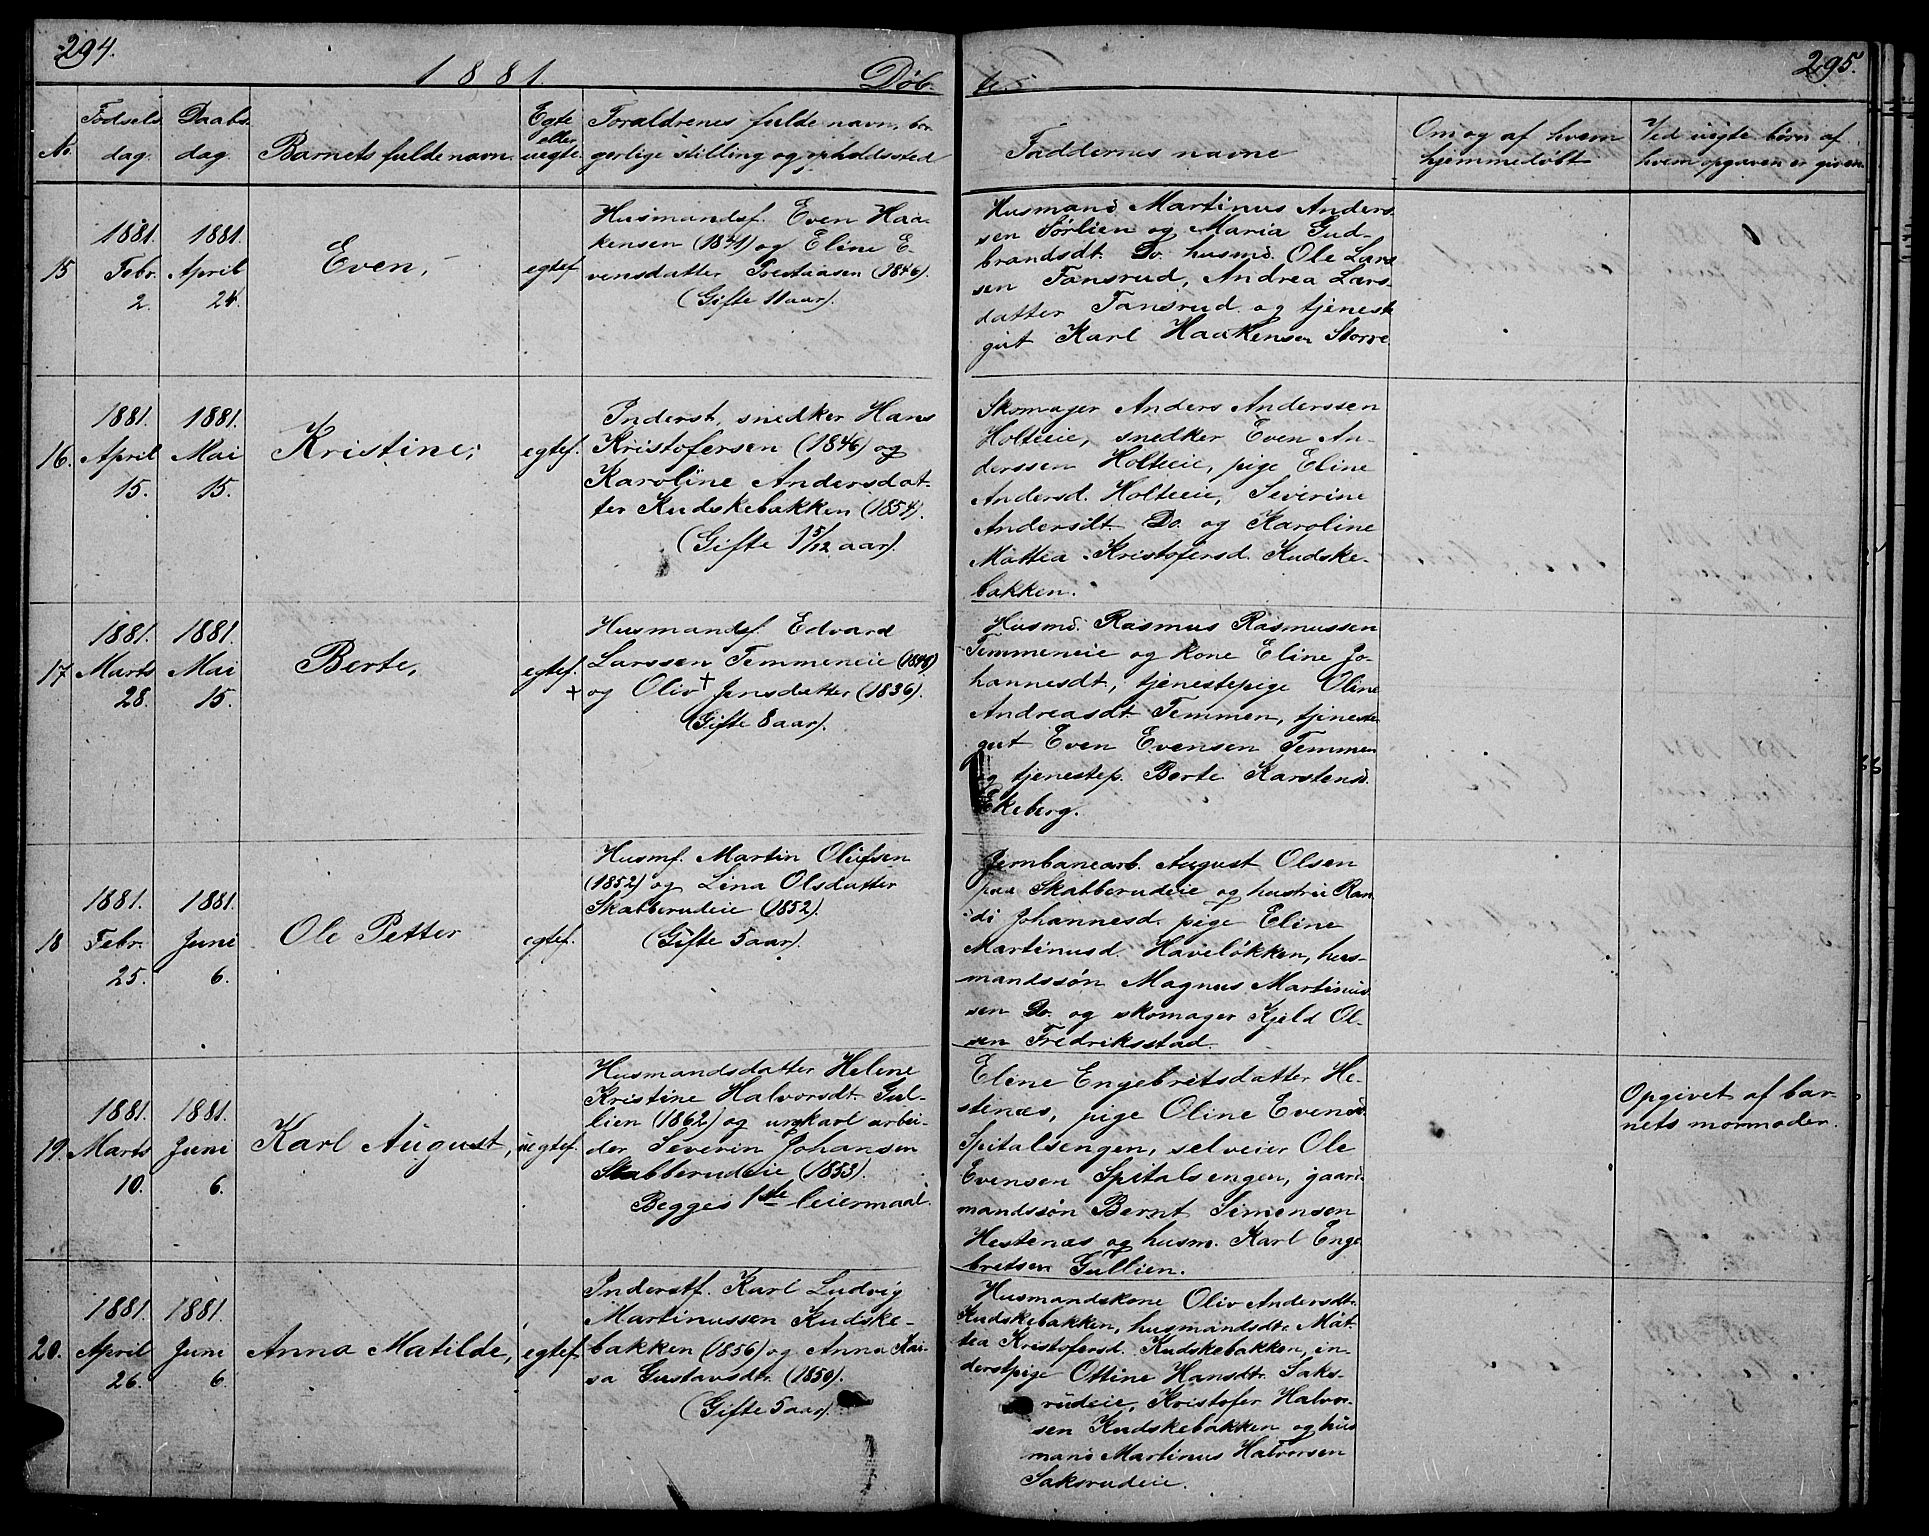 294.
1881.
Døb
te.
295.
No.
Fødsels
dag.
Daabs
dag.
Barnets fulde navn.
Egte
eller
uegte.
Forældrenes fulde navn, bor
gerlige stilling og opholdssted
Faddernes navne
Om og af hvem
hjemmedøbt
Ved uegte børn af
hvem opgaven er given.
15
1881.
Febr.
2.
1881.
April
24.
Even,
egtef.
Husmandsf. Even Haa-
kensen (1841) og Eline E-
vensdatter (1846).
(Gifte 11 aar).
Husmand Martinus Anders
sen Sørlien og Maria Gud-
brandsdt. Do. husmd. Ole Lars
sen Fansrud, Andrea Lars-
datter Fansrud og tjeneste
gut Karl Haakensen Storre
16.
1881.
April
15.
1881.
Mai
15.
Kristine,
egtef.
Inderst, snedker Hans
Kristofersen (1846) og
Karoline Andersdat-
ter Kudskebakken (1854).
(Gifte 1 5/12 aar).
Skomager Anders Anderssen
Holteeie, snedker Even An-
derssen Holteeie, pige Eline
Andersd. Holteeie, Severine
Andersdt. Do. og Karoline
Mattea Kristofersd. Kudske-
bakken.
17
1881.
Marts
28.
1881.
Mai
15.
Berte,
egtef.
+
Husmandsf. Edvard
Larssen Temmeneie (1848)
og Oliv + Jensdatter (1836).
(Gifte 8 aar).
Husmd. Rasmus Rasmussen
Temmeneie og kone Eline Jo-
hannesdt., tjenestepige Oline
Andreasdt. Temmen, tjeneste
gut Even Evensen Temmen
og tjenestep. Berte Karstensd.
Ekeberg.
18
1881.
Febr.
25.
1881.
Juni
6.
Ole Petter
egtef.
Husmf. Martin Olufsen
(1852) og Lina Olsdatter
Skabberudeie (1852).
(Gifte 5 aar).
Jernbanearb. August Olsen
paa Skabberudeie og hustru Ran
di Johannesd. pige Eline
Martinusd. Haveløkken, hus-
mandssøn Magnus Martinus
sen Do. og skomager Kjeld Ol-
sen Fredriksstad.
19.
1881.
Marts
10.
1881.
Juni
6.
Karl August,
uegtef.
Husmandsdatter Helene
Kristine Halvorsdt. Gul-
lien (1862) og ungkarl arbei-
der Severin Johansen
Skabberudeie (1853).
Begges 1ste leiermaal.
Eline Engebretsdatter He-
stenæs, pige Oline Evensd.
Spitalsengen, selveier Ole
Evensen Spitalsengen, gaard
mandssøn Bernt Simensen
Hestenæs og husm. Karl Enge
bretsen Gullien.
Opgivet af bar-
nets mormoder.
20.
1881.
April
26.
1881.
Juni
6.
Anna Matilde,
egtef.
Inderstf. Karl Ludvig
Martinussen Kudske-
bakken (1856) og Anna Kai-
sa Gustavsdt. (1850).
(Gifte 5 aar).
Husmandskone Oliv Andersdt.
Kudskebakken, husmandsdt. Mat-
tea Kristofersd. Kudskebakken, in-
derstpige Ottine Hansdt. Saks-
rudeie, Kristofer Halvor-
sen Kudskebakken og hus
mand Martinus Halvorsen
Saksrudeie.